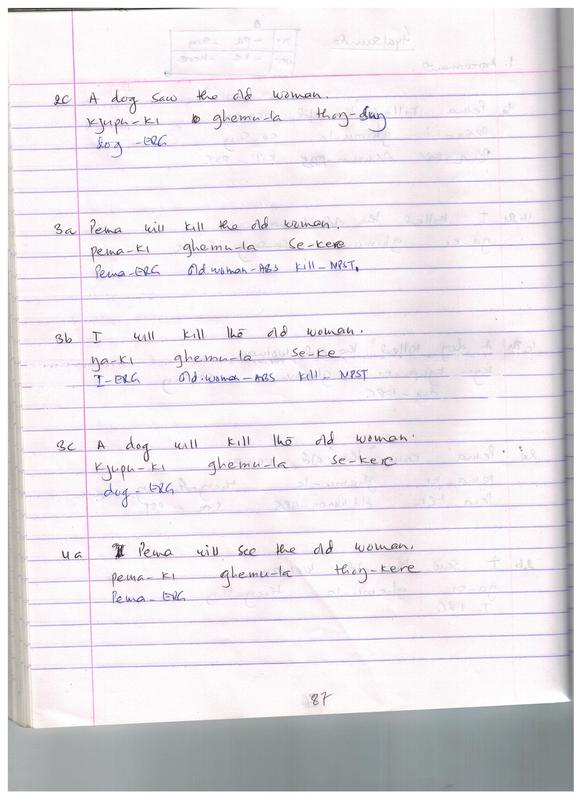 2c A dog saw the old woman.
Kjupu-ki ghemu-la thoŋ-suŋ
dog-ERG
3a Pema will kill the old woman.
pema-ki ghemu-la se-kere
Pema-ERG Old.woman-ABS kill-NPST.
3b I will kill the old woman.
ŋa-ki ghemu-la se-ke
I-ERG Old.woman-ABS kill-NPST
3c A dog will kill the old woman.
Kjupu-ki ghemu-la se-kere
dog-ERG
4a Pema will see the old woman.
pema-ki ghemu-la thoŋ-kere
Pema-ERG
87